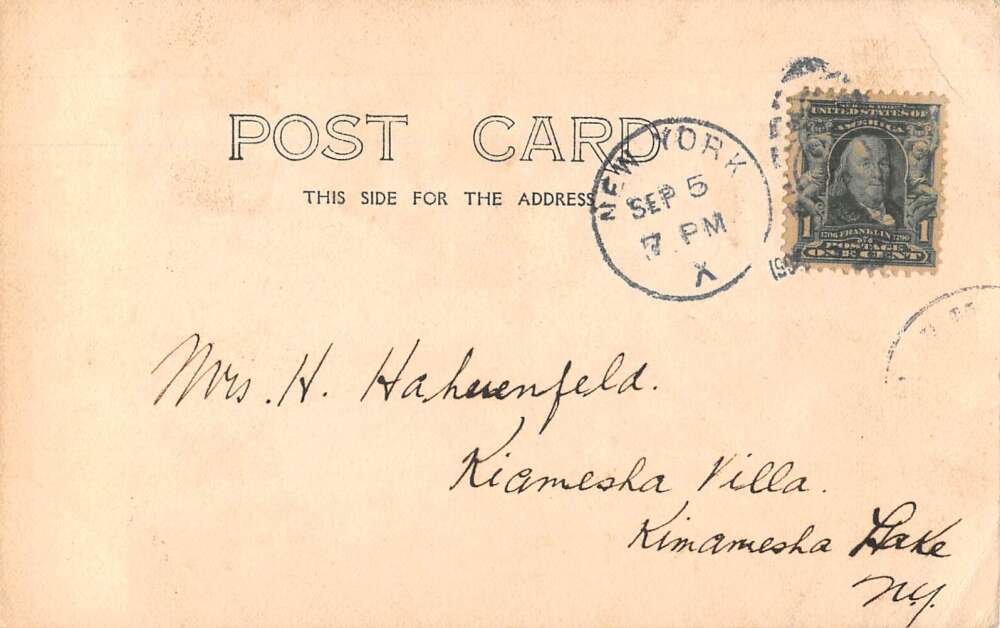 POST CARD
THIS SIDE FOR THE ADDRESS
NEW YORK
SEP 5
7 PM
X
UNITED STATES OF
AMERICA
1 1706 FRANKLIN 1790 1
POSTAGE
ONE CENT
Mrs. H. Hahnenfeld.
Kiamesha Villa.
Kimamesha Lake
N.Y.